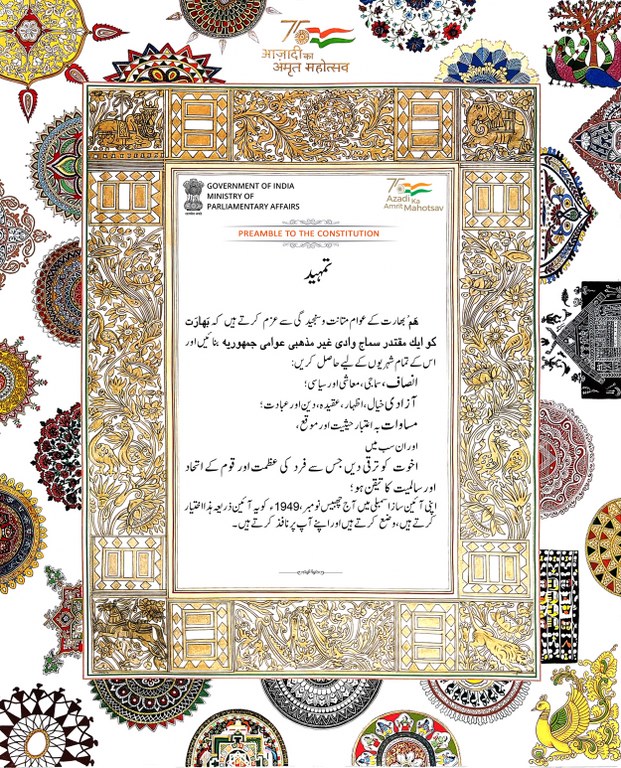 75
आज़ादी का
अमृत महोत्सव
GOVERNMENT OF INDIA
MINISTRY OF
PARLIAMENTARY AFFAIRS
75
Azadi Ka
Amrit Mahotsav
PREAMBLE TO THE CONSTITUTION
تمہید
ہم' بھارت کے عوام متانت و سنجیدگی سے عزم کرتے ہیں کہ بھارت
کو ایک مقتدر سماج وادی غیر مذہبی عوامی جمہوریہ بنائیں اور
اس کے تمام شہریوں کے لیے حاصل کریں:
انصاف، سماجی، معاشی اور سیاسی؛
آزادی خیال، اظہار، عقیدہ، دین اور عبادت؛
مساوات بہ اعتبار حیثیت اور موقع،
اور ان سب میں
اخوت کو ترقی دیں جس سے فرد کی عظمت اور قوم کے اتحاد
اور سالمیت کا تیقن ہو؛
اپنی آئین ساز اسمبلی میں آج چھبیس نومبر، 1949ء کو یہ آئین ذریعہ ہذا اختیار
کرتے ہیں، وضع کرتے ہیں اور اپنے آپ پر نافذ کرتے ہیں۔